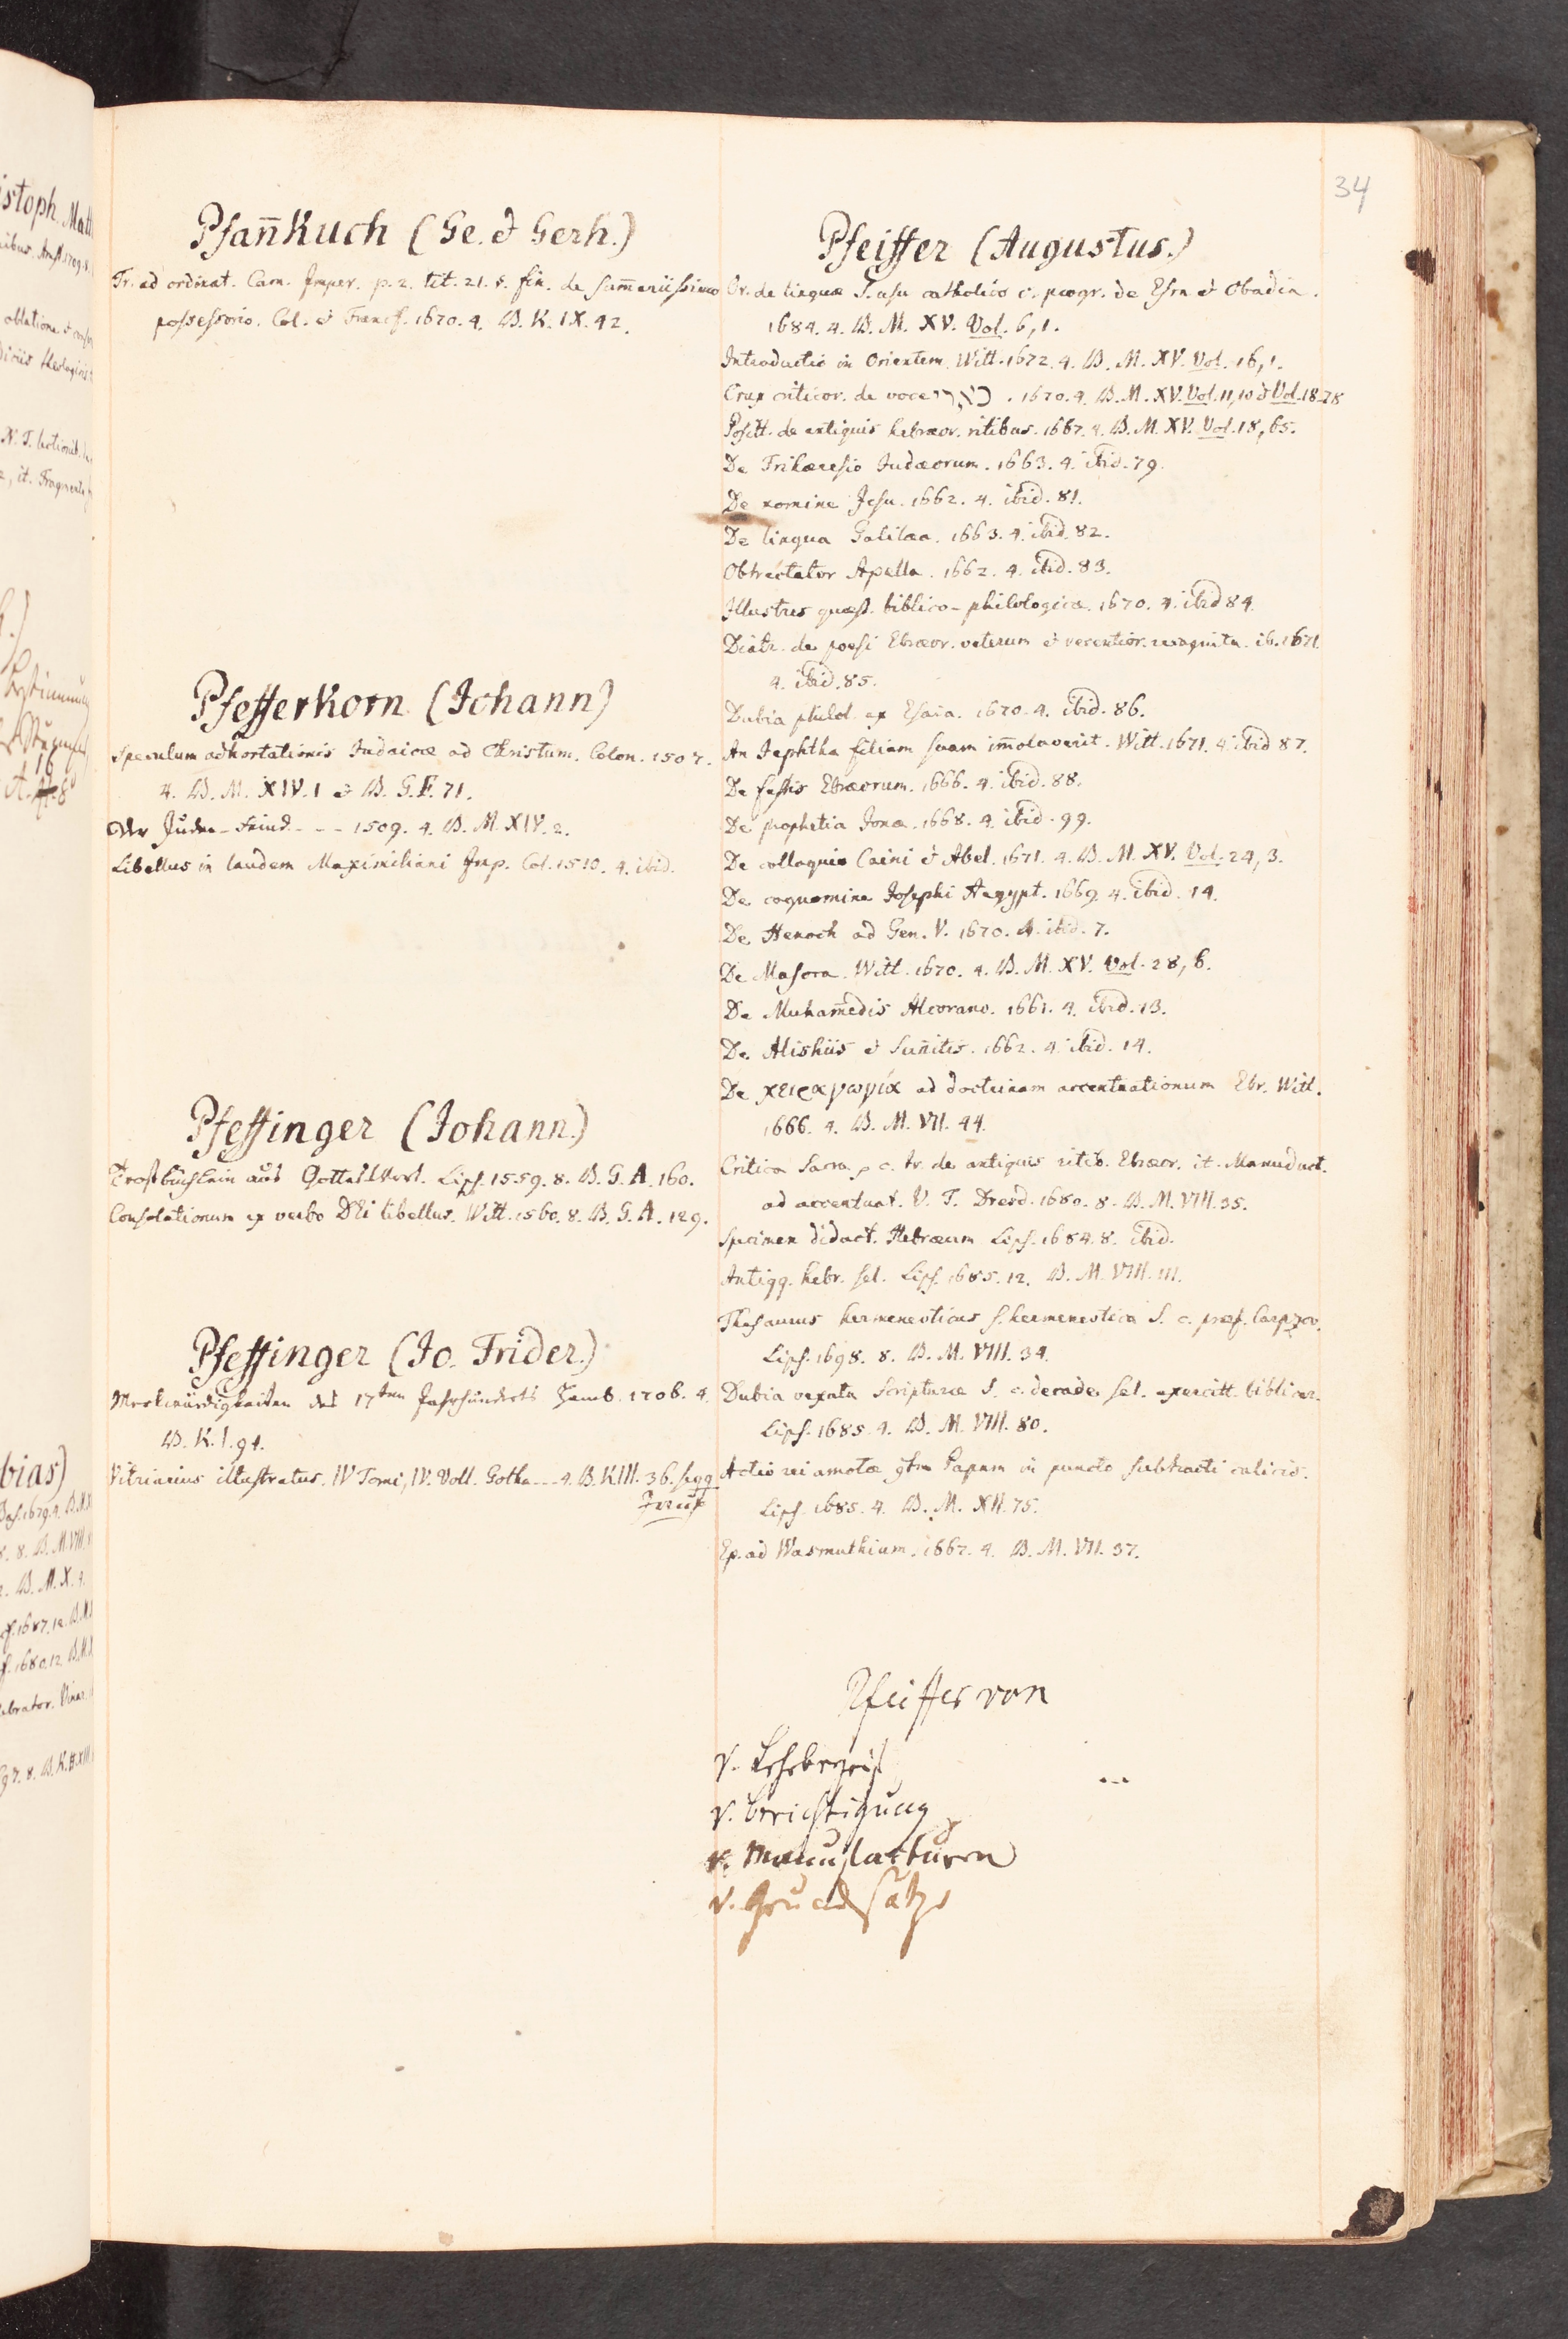 34
Pfan̄Kuch (Ge. & Gerh.)
Tr. ad ordinat. Cam. Imper. p. 2. tit. 21. s. fin. de sum̄ariissimo
possessorio. Col. & Francf. 1670. 4. B. K. IX. 42.
PfefferKorn (Johann)
Speculum adhortationis Judaicæ ad Christum. Colon. 1507.
4. B. M. XIV. 1 & B. G. F. 71.
Der Juden-Feind - - - 1509. 4. B. M. XIV. 2.
Libellus in laudem Maximiliani Imp. Col. 1510. 4. ibid.
Pfeffinger (Johann)
Trostbüchlein aus Gottes Wort. Lips. 1559. 8. B. G. A. 160.
Consolationum ex verbo DEi libellus. Witt. 1560. 8. B. G. A. 129.
Pfeffinger (Jo. Frider.)
Merkwürdigkeiten des 17ten Jahrhunderts Hamb. 1706. 4.
B. K. I. 94.
Vitriarius illustratus. IV Tomi, IV. Voll. Gotha - - - 4. B. K III. 36. seqq
Pfeiffer (Augustus.)
Or. de linguæ S. usu catholico c. progr. de Esra & Obadia.
1684. 4. B. M. XV. Vol. 6, 1.
Introductio in Orientem. Witt. 1672. 4. B. M. XV. Vol. 16, 1.
Crux criticor. de voce כארי. 1670. 4. B. M. XV. Vol. 11, 10 & Vol. 18. 78
Positt. de antiquis hebræor. ritibus. 1667. 4. B. M. XV. Vol. 18, 65.
De Trihæresio Judæorum. 1663. 4. ibid. 79.
De nomine Jesu. 1662. 4. ibid. 81.
De lingua Galilæa. 1663. 4. ibid. 82.
Obtrectator Apella. 1662. 4. ibid. 83.
Illustres quæst. biblico-philologicæ. 1670. 4. ibid 84.
Diatr. de poesi Ebræor. veterum & recentior. recognita. ib. 1671.
4. ibid. 85.
Dubia philol. ex Esaia. 1670. 4. ibid. 86.
An Jephtha filiam suam im̄olaverit. Witt. 1671. 4. ibid 87.
De festis Ebræorum. 1666. 4. ibid. 88.
De prophetia Jonæ. 1668. 4. ibid. 99.
De colloquio Caini & Abel. 1671. 4. B. M. XV. Vol. 24, 3.
De cognomine Josephi Aegypt. 1669. 4. ibid. 14.
De Henoch ad Gen. V. 1670. 4. ibid. 7.
De Masora. Witt. 1670. 4. B. M. XV. Vol. 28, 6.
De Muham̄edis Alcorano. 1661. 4. ibid. 13.
De Alishiis & Sun̄itis. 1662. 4. ibid. 14.
De χειραγωγίᾳ ad doctrinam accentuationum Ebr. Witt.
1666. 4. B. M. VII. 44.
Critica Sacra, c. tr. de antiquis ritib. Ebræor. it. Manuduct.
ad accentuat. V. T. Dresd. 1680. 8. B. M. VIII. 35.
Specimen didact. Hebræum Lips. 1684. 8. ibid.
Antiqq. hebr. sel. Lips. 1685. 12. B. M. VIII. 111.
Thesaurus hermenevticus s. hermenevtica S. c. præf. Carpzov.
Lips. 1698. 8. B. M. VIII. 34.
Dubia vexata Scripturæ S. c. decade sel. exercitt. biblicar.
Lips. 1685. 4. B. M. VIII. 80.
Actio rei amotæ Papam in puncto subtracti calicis.
Lips. 1685. 4. B. M. XII. 75.
Ep. ad Wasmuthium. 1667. 4. B. M. VII. 37.
Pfeiffer von
v. Lehrbegrif
v. Berichtigung
v. Manufacturen
v. Grundsätze